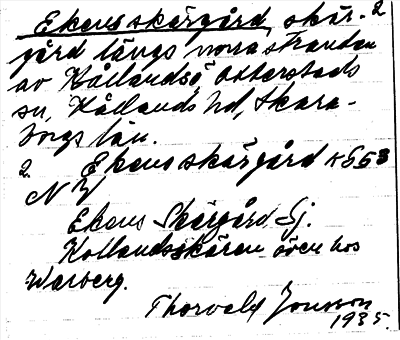 Ekens skärgård, skär- 2
gård längs norra stranden
av Kållandsö Otterstads
sn, Kållands hd, Skara-
borgs län.
2. Ekens skärgård K 553
N Y
Ekens Skärgård Sj.
Kollandsskären även hos
Warberg.
Thorvald Jonsson
1935.